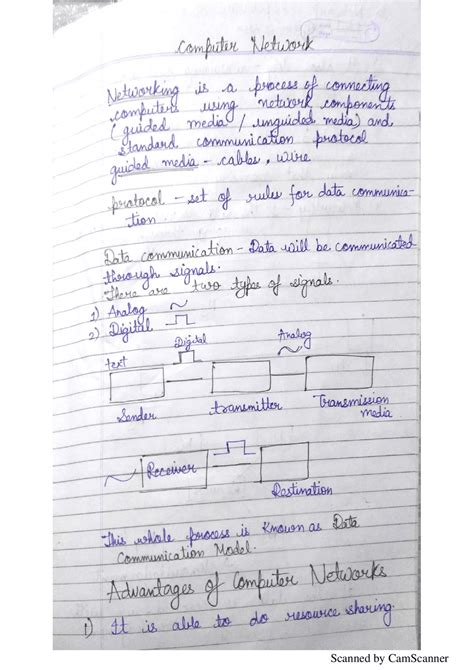 Computer Network
Networking is a process of connecting
computers using network components
(guided media / unguided media) and
standard communication protocol
guided media - cables, wire
protocol - set of rules for data communica-
tion
Data communication - Data will be communicated
through signals.
There are two types of signals.
1) Analog
2) Digital
text Digital Analog
Sender transmitter Transmission
media
Receiver
Destination
This whole process is known as Data
Communication Model.
Advantages of Computer Networks
1) It is able to do resource sharing.
Scanned by CamScanner